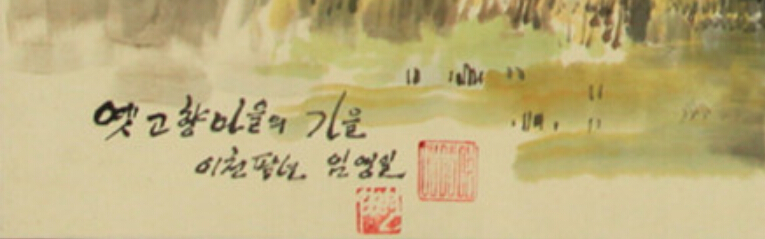 옛고향마을의 가을
이천팔년 임영실